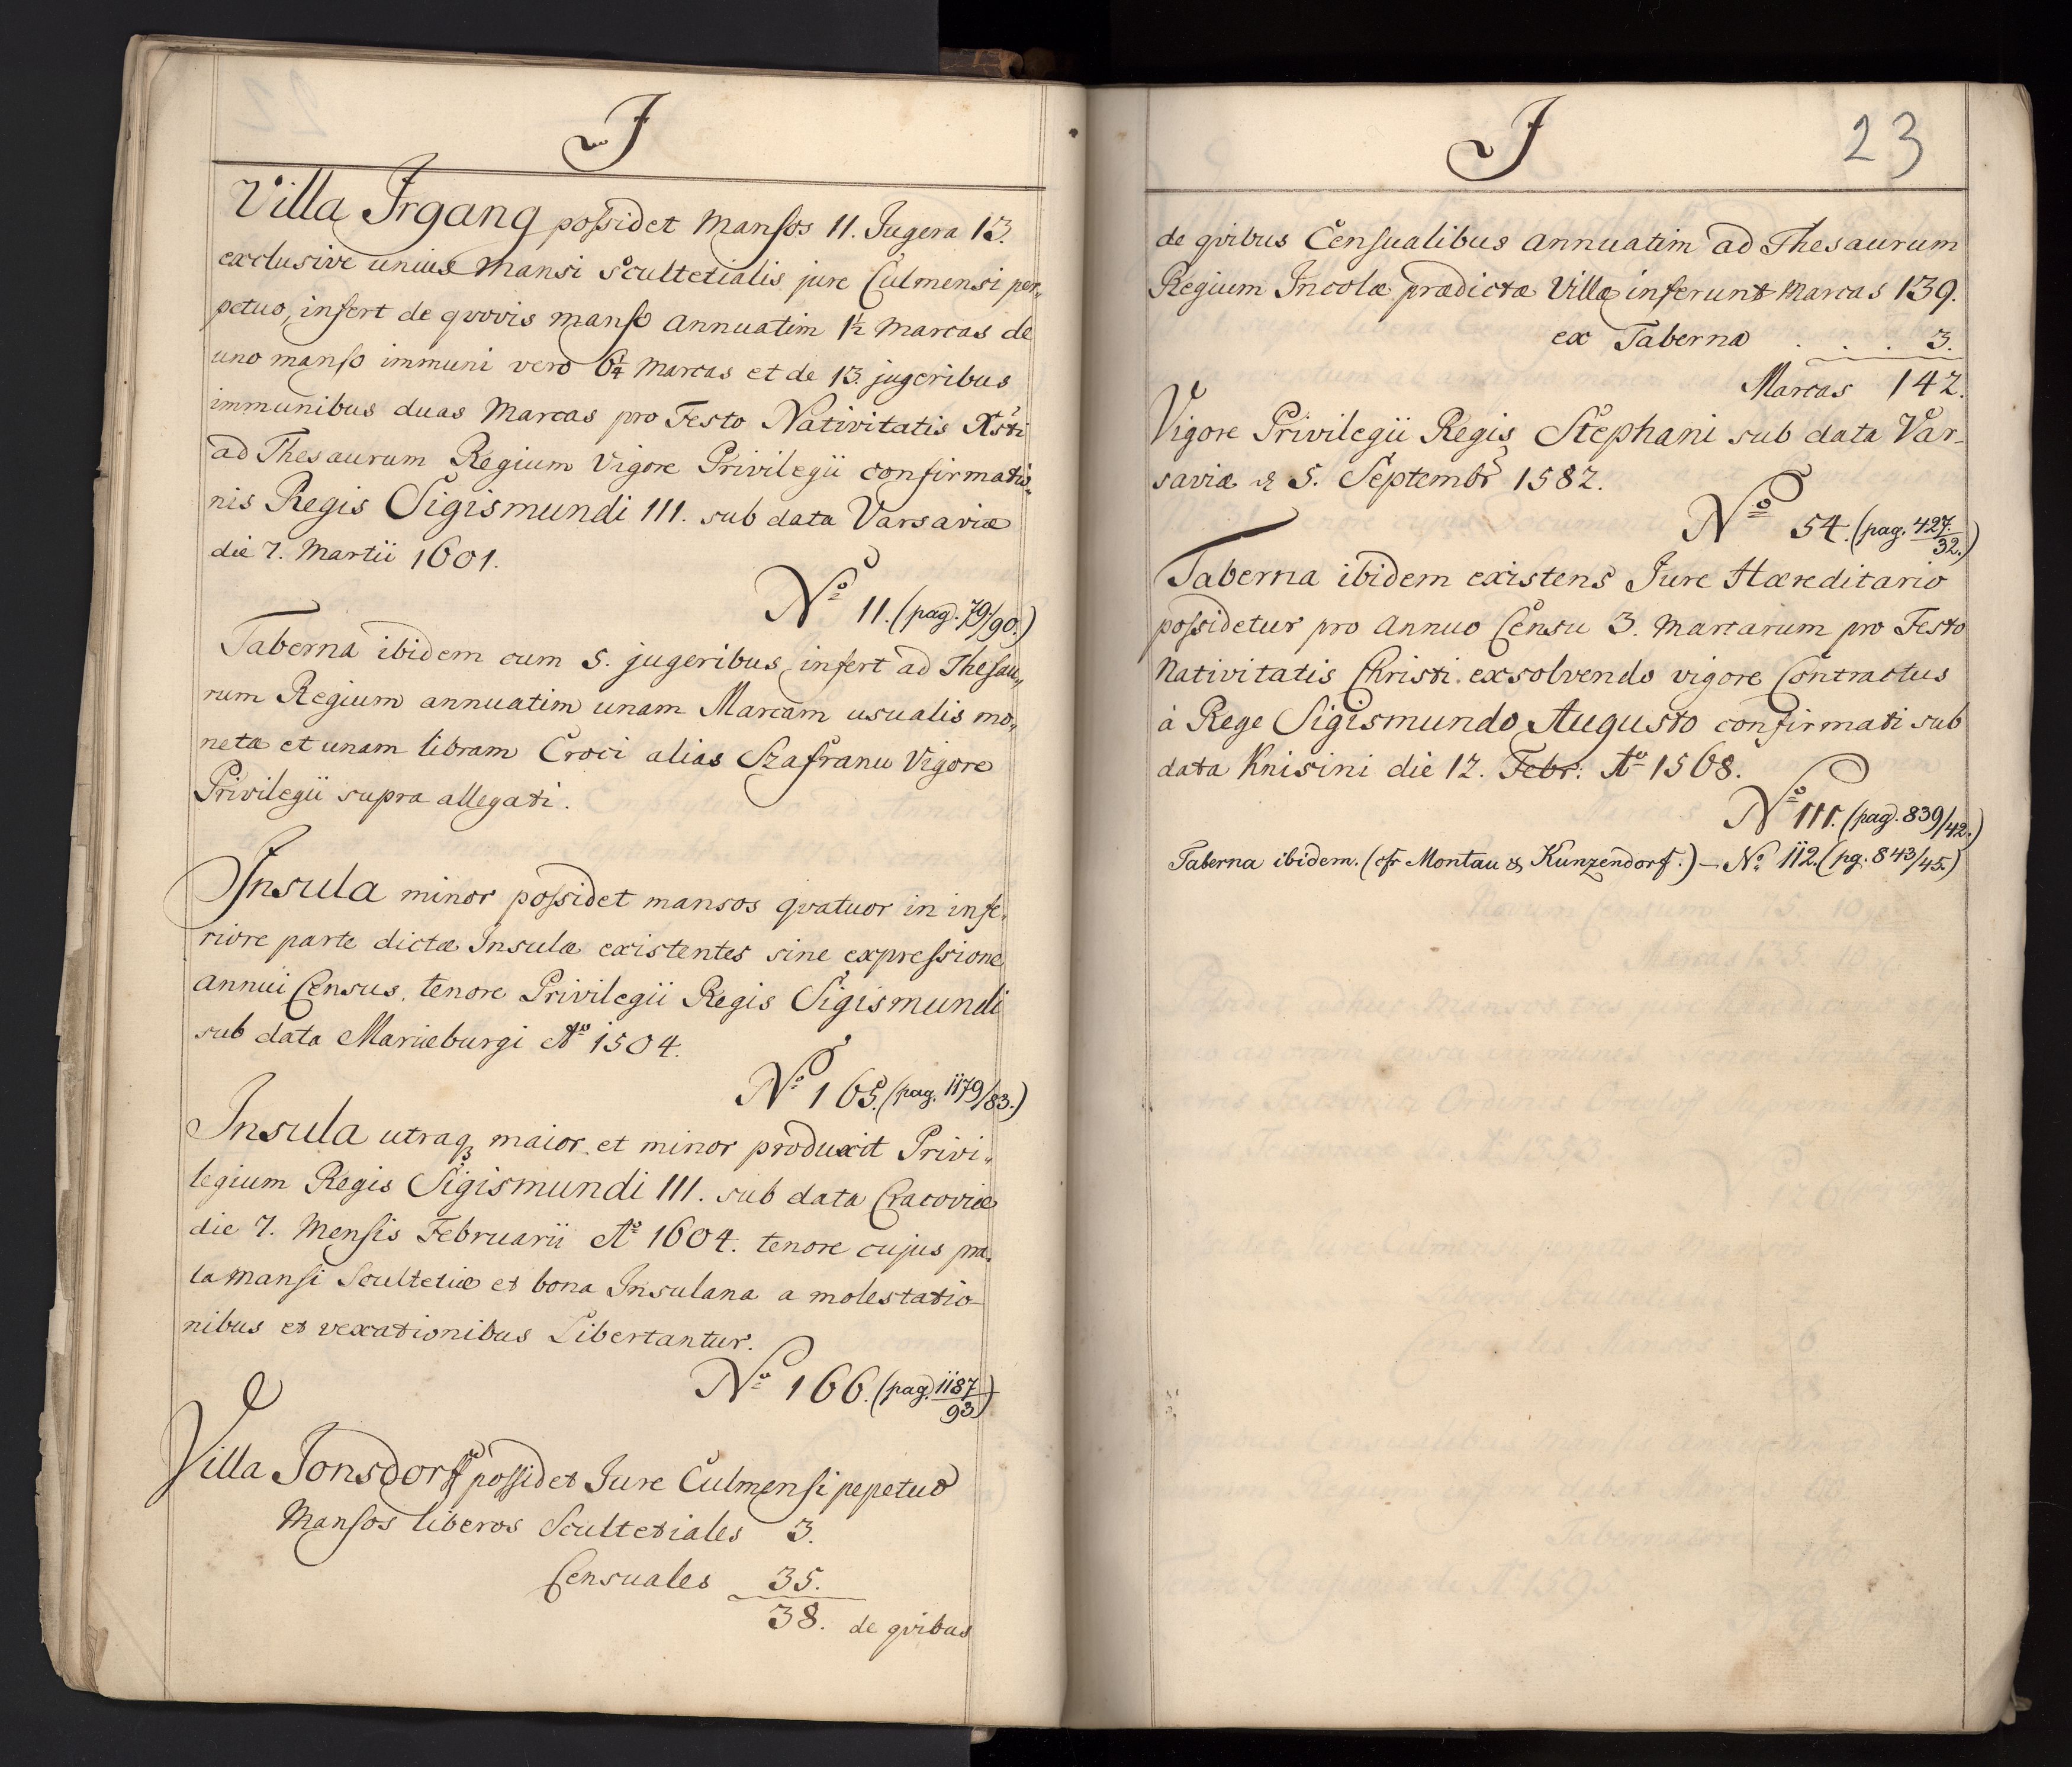 J
Villa Irgang possidet Mansos 11. Jugera 13.
exclusive unius Mansi Scultetialis jure Culmensi per„
petuo, infert de qvovis manso Annuatim 1½ Marcas de
uno manso immuni vero 6¼ Marcas et de 13. jugeribus
immunibus duas Marcas pro Festo Nativitatis Xsti
ad Thesaurum Regium Vigore Privilegii confirmatio„
nis Regis Sigismundi III. sub data Varsaviæ
die 7. Martii 1601.
No 11. (pag. 79/90.)
Taberna ibidem cum 5. jugeribus infert ad Thesau„
rum Regium annuatim unam Marcam usualis mo„
netæ et unam libram Croci alias Szafranu Vigore
Privilegii supra allegati.
Insula minor possidet mansos qvatuor in infe„
riore parte dictæ Insulæ existentes sine expressione
Annui Census, tenore Privilegii Regis Sigismundi
sub data Mariæburgi Ao 1504.
No 165. (pag. 1179/83.)
Insula utraq3 maior et minor produxit Privi„
legium Regis Sigismundi III. sub data Cracoviæ
die 7. Mensis Februarii Ao 1604. tenore cujus pra„
ta Mansi Scultetiæ et bona Insulana a molestatio-
nibus et vexationibus Libertantur.
No 166. (pag. 1187/93)
Villa Jonsdorff possidet Jure Culmensi pepetuo
Mansos liberos Scultetiales 3.
Censuales 35.
38. de qvibus
J
23
de qvibus Censualibus Annuatim ad Thesaurum
Regium Incolæ prædictæ Villæ inferunt Marcas 139.
ex Taberna . . . 3.
Marcas 142.
Vigore Privilegii Regis Stephani sub data Var-
saviæ d. 5. Septembr 1582.
No 54. (pag. 427/32.)
Taberna ibidem existens Jure Hæreditario
possidetur pro Annuo Censu 3. Marcarum pro Festo
Nativitatis Christi exsolvendo vigore Contractus
à Rege Sigismundo Augusto confirmati sub
data Knisini die 12. Febr: Ao 1568.
No 111. (pag. 839/42.)
Taberna ibidem. (cfr Montau & Kunzendorf.) – No 112. (pg. 843/45.)